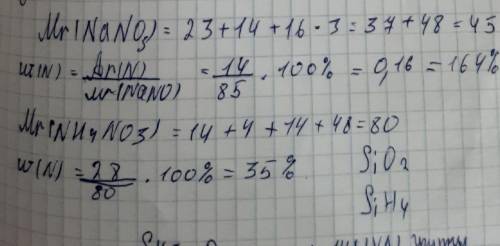 Mr(NaNO3) = 23+14+16·3 = 37+48 = 45
w(N) = Ar(N)/Mr(NaNO) = 14/85 · 100% = 0,16 = 164%
Mr(NH4NO3) = 14+4+14+48=80
w(N) = 28/80 · 100% = 35%
SiO2
SiH4